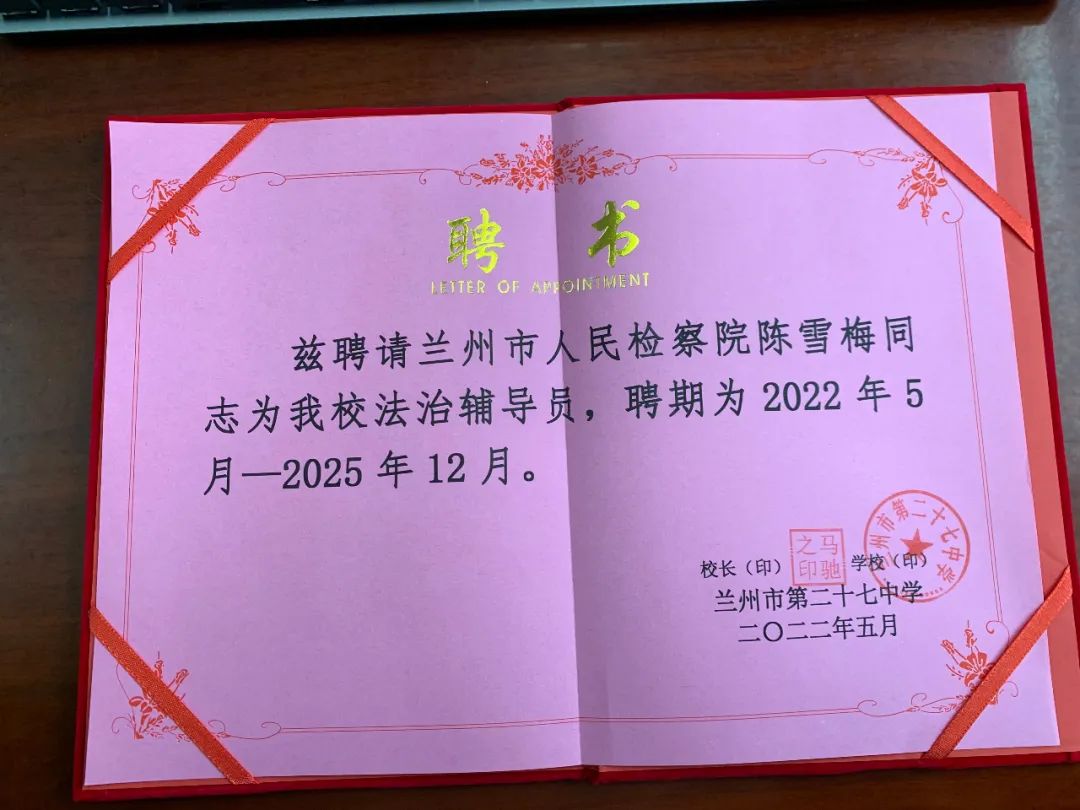 聘 书
LETTER OF APPOINTMENT
兹聘请兰州市人民检察院陈雪梅同
志为我校法治辅导员，聘期为 2022 年 5
月—2025 年 12 月。
校长（印） 学校（印）
马驰之印
兰州市第二十七中学
兰州市第二十七中学
二〇二二年五月